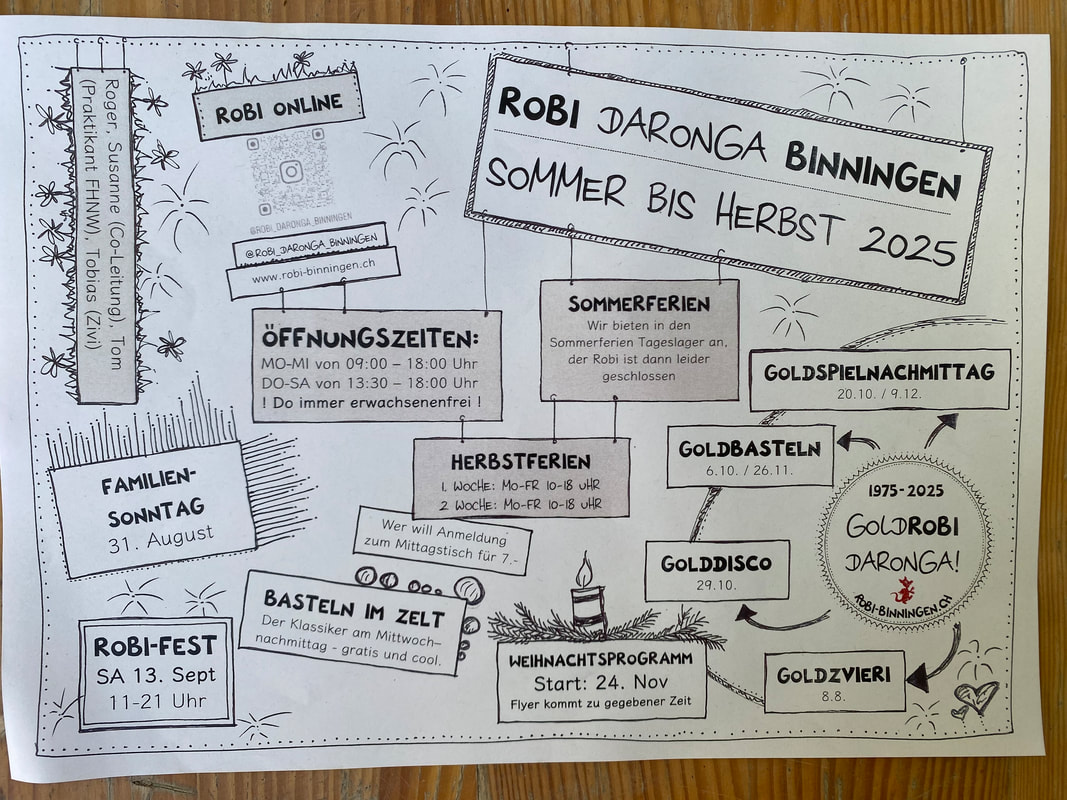 ROBI DARONGA BINNINGEN
SOMMER BIS HERBST 2025
Roger, Susanne (Co-Leitung), Tom
(Praktikant FHNW), Tobias (Zivi)
ROBI ONLINE
@ROBI_DARONGA_BINNINGEN
@ROBI_DARONGA_BINNINGEN
www.robi-binningen.ch
ÖFFNUNGSZEITEN:
MO-MI von 09:00 – 18:00 Uhr
DO-SA von 13:30 – 18:00 Uhr
! Do immer erwachsenenfrei !
SOMMERFERIEN
Wir bieten in den
Sommerferien Tageslager an,
der Robi ist dann leider
geschlossen
HERBSTFERIEN
1. WOCHE: MO-FR 10-18 UHR
2 WOCHE: MO-FR 10-18 UHR
Wer will Anmeldung
zum Mittagstisch für 7.-
FAMILIEN-
SONNTAG
31. August
ROBI-FEST
SA 13. Sept
11-21 Uhr
BASTELN IM ZELT
Der Klassiker am Mittwoch-
nachmittag - gratis und cool.
WEIHNACHTSPROGRAMM
Start: 24. Nov
Flyer kommt zu gegebener Zeit
GOLDSPIELNACHMITTAG
20.10. / 9.12.
GOLDBASTELN
6.10. / 26.11.
GOLDDISCO
29.10.
GOLDZVIERI
8.8.
1975-2025
GOLDROBI
DARONGA!
ROBI-BINNINGEN.CH